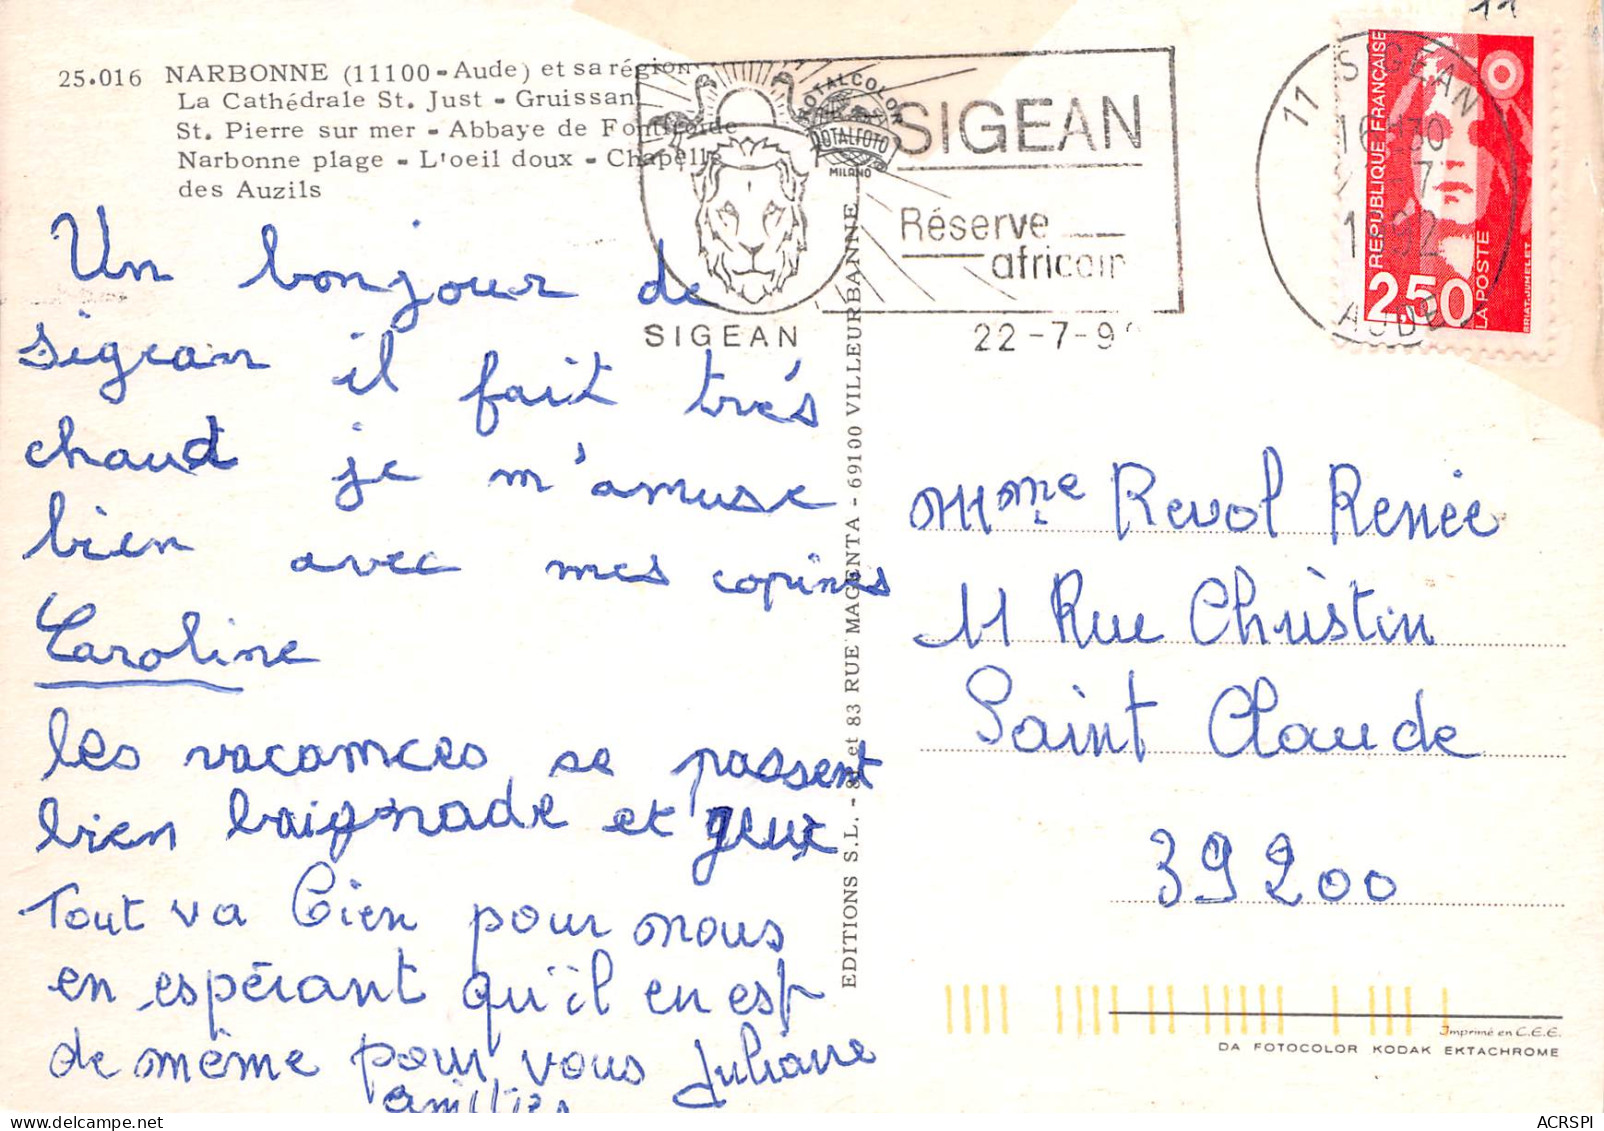 11
25.016 NARBONNE (11100 - Aude) et sa région
La Cathédrale St. Just - Gruissan
St. Pierre sur mer - Abbaye de Fontfroide
Narbonne plage - L'oeil doux - Chapelle
des Auzils
ROTALCOLOR
ROTALFOTO
MILANO
SIGEAN
Réserve
africain
SIGEAN
22-7-9
11 SIGEAN
16 H30
7
1992
AUDE
REPUBLIQUE FRANÇAISE
2,50
LA POSTE
BRIAT-JUMELET
Un bonjour de
sigean il fait trés
chaud je m'amuse
bien avec mes copines
Caroline
les vacances se passent
bien baignade et jeux
Tout va bien pour nous
en espérant qu'il en est
de même pour vous Juliane
amitiés
EDITIONS S.L. - 81 et 83 RUE MAGENTA - 69100 VILLEURBANNE
Mme Revol Renée
11 Rue Christin
Saint Claude
39200
Imprimé en C.E.E.
DA FOTOCOLOR KODAK EKTACHROME
ACRSPI